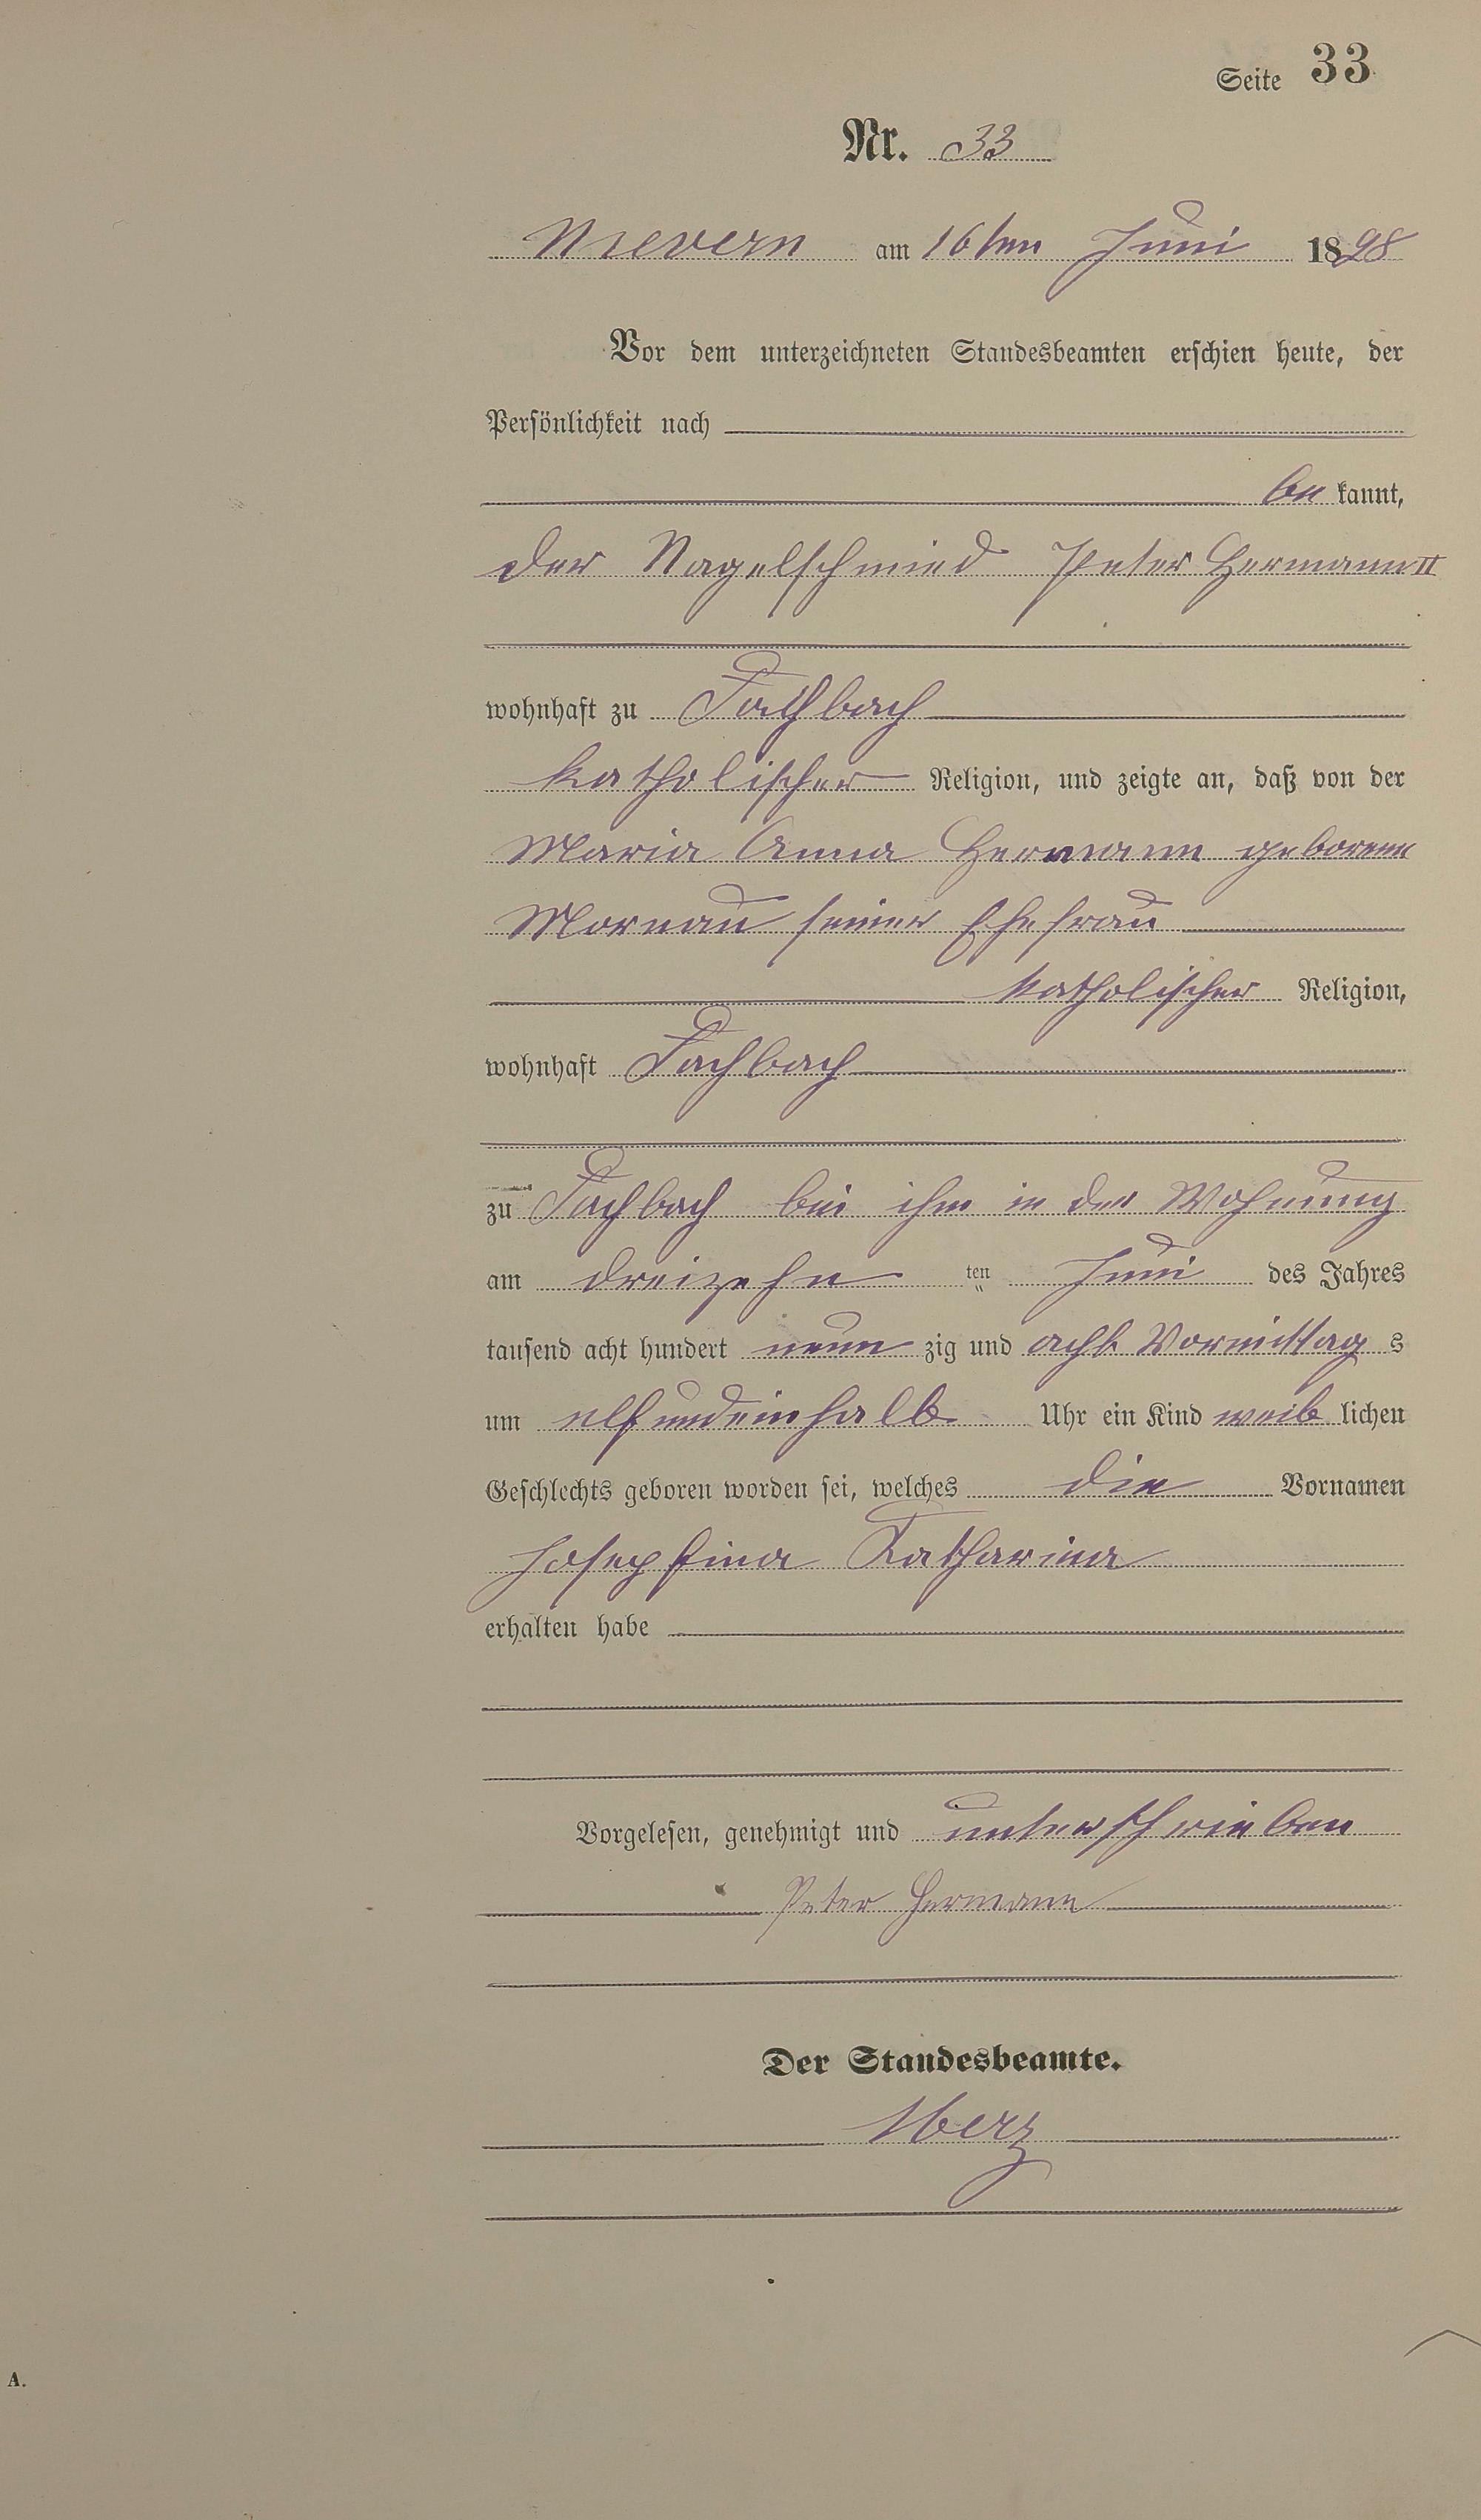 Seite 33
Nr. 33
Nievern am 16ten Juni 1898
Vor dem unterzeichneten Standesbeamten erschien heute, der
Persönlichkeit nach
be kannt,
der Nagelschmied Peter Hermann II
wohnhaft zu Fachbach
katholischer Religion, und zeigte an, daß von der
Maria Anna Hermann geborene
Mornau seiner Ehefrau
katholischer Religion,
wohnhaft Fachbach
zu Fachbach bei ihm in der Wohnung
am dreizehn ten Juni des Jahres
tausend acht hundert neun zig und acht Vormittag s
um elfundeinhalb Uhr ein Kind weib lichen
Geschlechts geboren worden sei, welches die Vornamen
Josephina Katharina
erhalten habe
Vorgelesen, genehmigt und unterschrieben
Peter Hermann
Der Standesbeamte.
Merz
A.